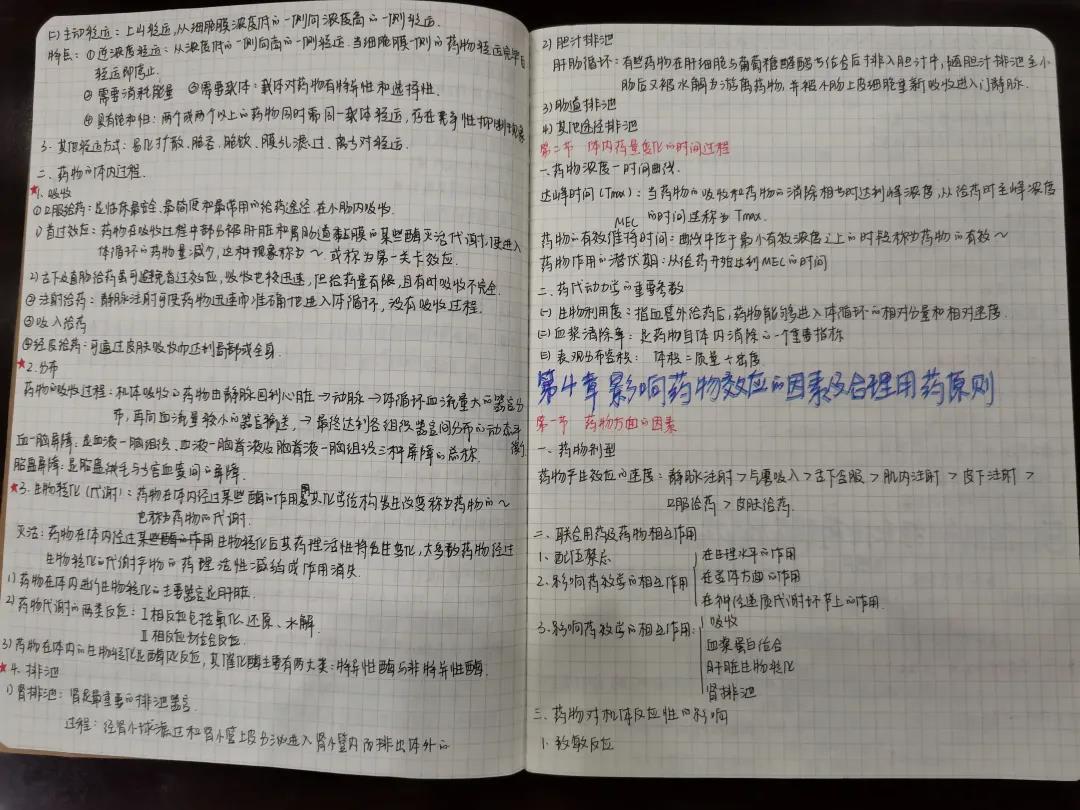 (二) 主动转运：上山转运，从细胞膜浓度低的一侧向浓度高的一侧转运.
特点：①逆浓度转运：从浓度低的一侧向高的一侧转运.当细胞膜一侧的药物转运完毕后
转运即停止.
②需要消耗能量 ③需要载体：载体对药物有特异性和选择性.
④具有饱和性：两个或两个以上的药物同时需同一载体转运，存在竞争性抑制现象
3. 其他转运方式：易化扩散、胞吞、胞饮、膜孔滤过、离子对转运.
二、药物的体内过程.
★1. 吸收
①口服给药：是临床最安全、最简便和最常用的给药途径.在小肠内吸收.
1) 首过效应：药物在吸收过程中部分被肝脏和胃肠道黏膜的某些酶灭活代谢，使进入
体循环的药物量减少，这种现象称为～或称为第一关卡效应.
2) 舌下及直肠给药虽可避免首过效应，吸收也较迅速，但给药量有限，且有时吸收不完全.
②注射给药：静脉注射可使药物迅速而准确地进入体循环，没有吸收过程.
③吸入给药
④经皮给药：可通过皮肤吸收而达到局部或全身.
★2. 分布
药物的吸收过程：机体吸收的药物由静脉回到心脏→动脉→体循环血流量大的器官分
布，再向血流量较小的器官输送，→最终达到各组织器官间分布的动态平
衡
血-脑屏障：是血液-脑组织、血液-脑脊液及脑脊液-脑组织三种屏障的总称.
胎盘屏障：是胎盘绒毛与子宫血窦间的屏障.
★3. 生物转化（代谢）：药物在体内经过某些酶的作用使其化学结构发生改变称为药物的～
也称为药物的代谢.
灭活：药物在体内经过某些酶的作用生物转化后其药理活性将发生变化，大多数药物经过
生物转化的代谢产物的药理活性减弱或作用消失.
1) 药物在体内进行生物转化的主要器官是肝脏.
2) 药物代谢的两类反应：Ⅰ相反应包括氧化、还原、水解.
Ⅱ相反应为结合反应.
3) 药物在体内的生物转化是酶促反应，其催化酶主要有两大类：特异性酶与非特异性酶.
★4. 排泄
1) 肾排泄：肾是最重要的排泄器官.
过程：经肾小球滤过和肾小管上皮分泌进入肾小管内而排出体外的
2) 胆汁排泄
肝肠循环：有些药物在肝细胞与葡萄糖醛酸等结合后排入胆汁中，随胆汁排泄至小
肠后又被水解为游离药物，并被小肠上皮细胞重新吸收进入门静脉.
3) 肠道排泄
4) 其他途径排泄
第二节 体内药量变化的时间过程
一.药物浓度-时间曲线.
达峰时间 (Tmax)：当药物的吸收和药物的消除相当时达到峰浓度，从给药时至峰浓度
的时间过程称为 Tmax.
MEC
药物的有效维持时间：曲线中位于最小有效浓度之上的时段称为药物的有效～
药物作用的潜伏期：从给药开始达到MEC的时间
二、药代动力学的重要参数
(一) 生物利用度：指血管外给药后，药物能够进入体循环的相对分量和相对速度.
(二) 血浆清除率：是药物自体内消除的一个重要指标
(三) 表观分布容积： 体积=质量÷密度
第4章 影响药物效应的因素及合理用药原则
第一节 药物方面的因素
一.药物剂型
药物产生效应的速度：静脉注射>气雾吸入>舌下含服>肌内注射>皮下注射>
口服给药>皮肤给药.
二、联合用药及药物相互作用
1. 配伍禁忌
2. 影响药效学的相互作用
在生理水平的作用
在受体方面的作用
在神经递质代谢环节上的作用.
3. 影响药效学的相互作用：
吸收
血浆蛋白结合
肝脏生物转化
肾排泄
三、药物对机体反应性的影响
1. 致敏反应